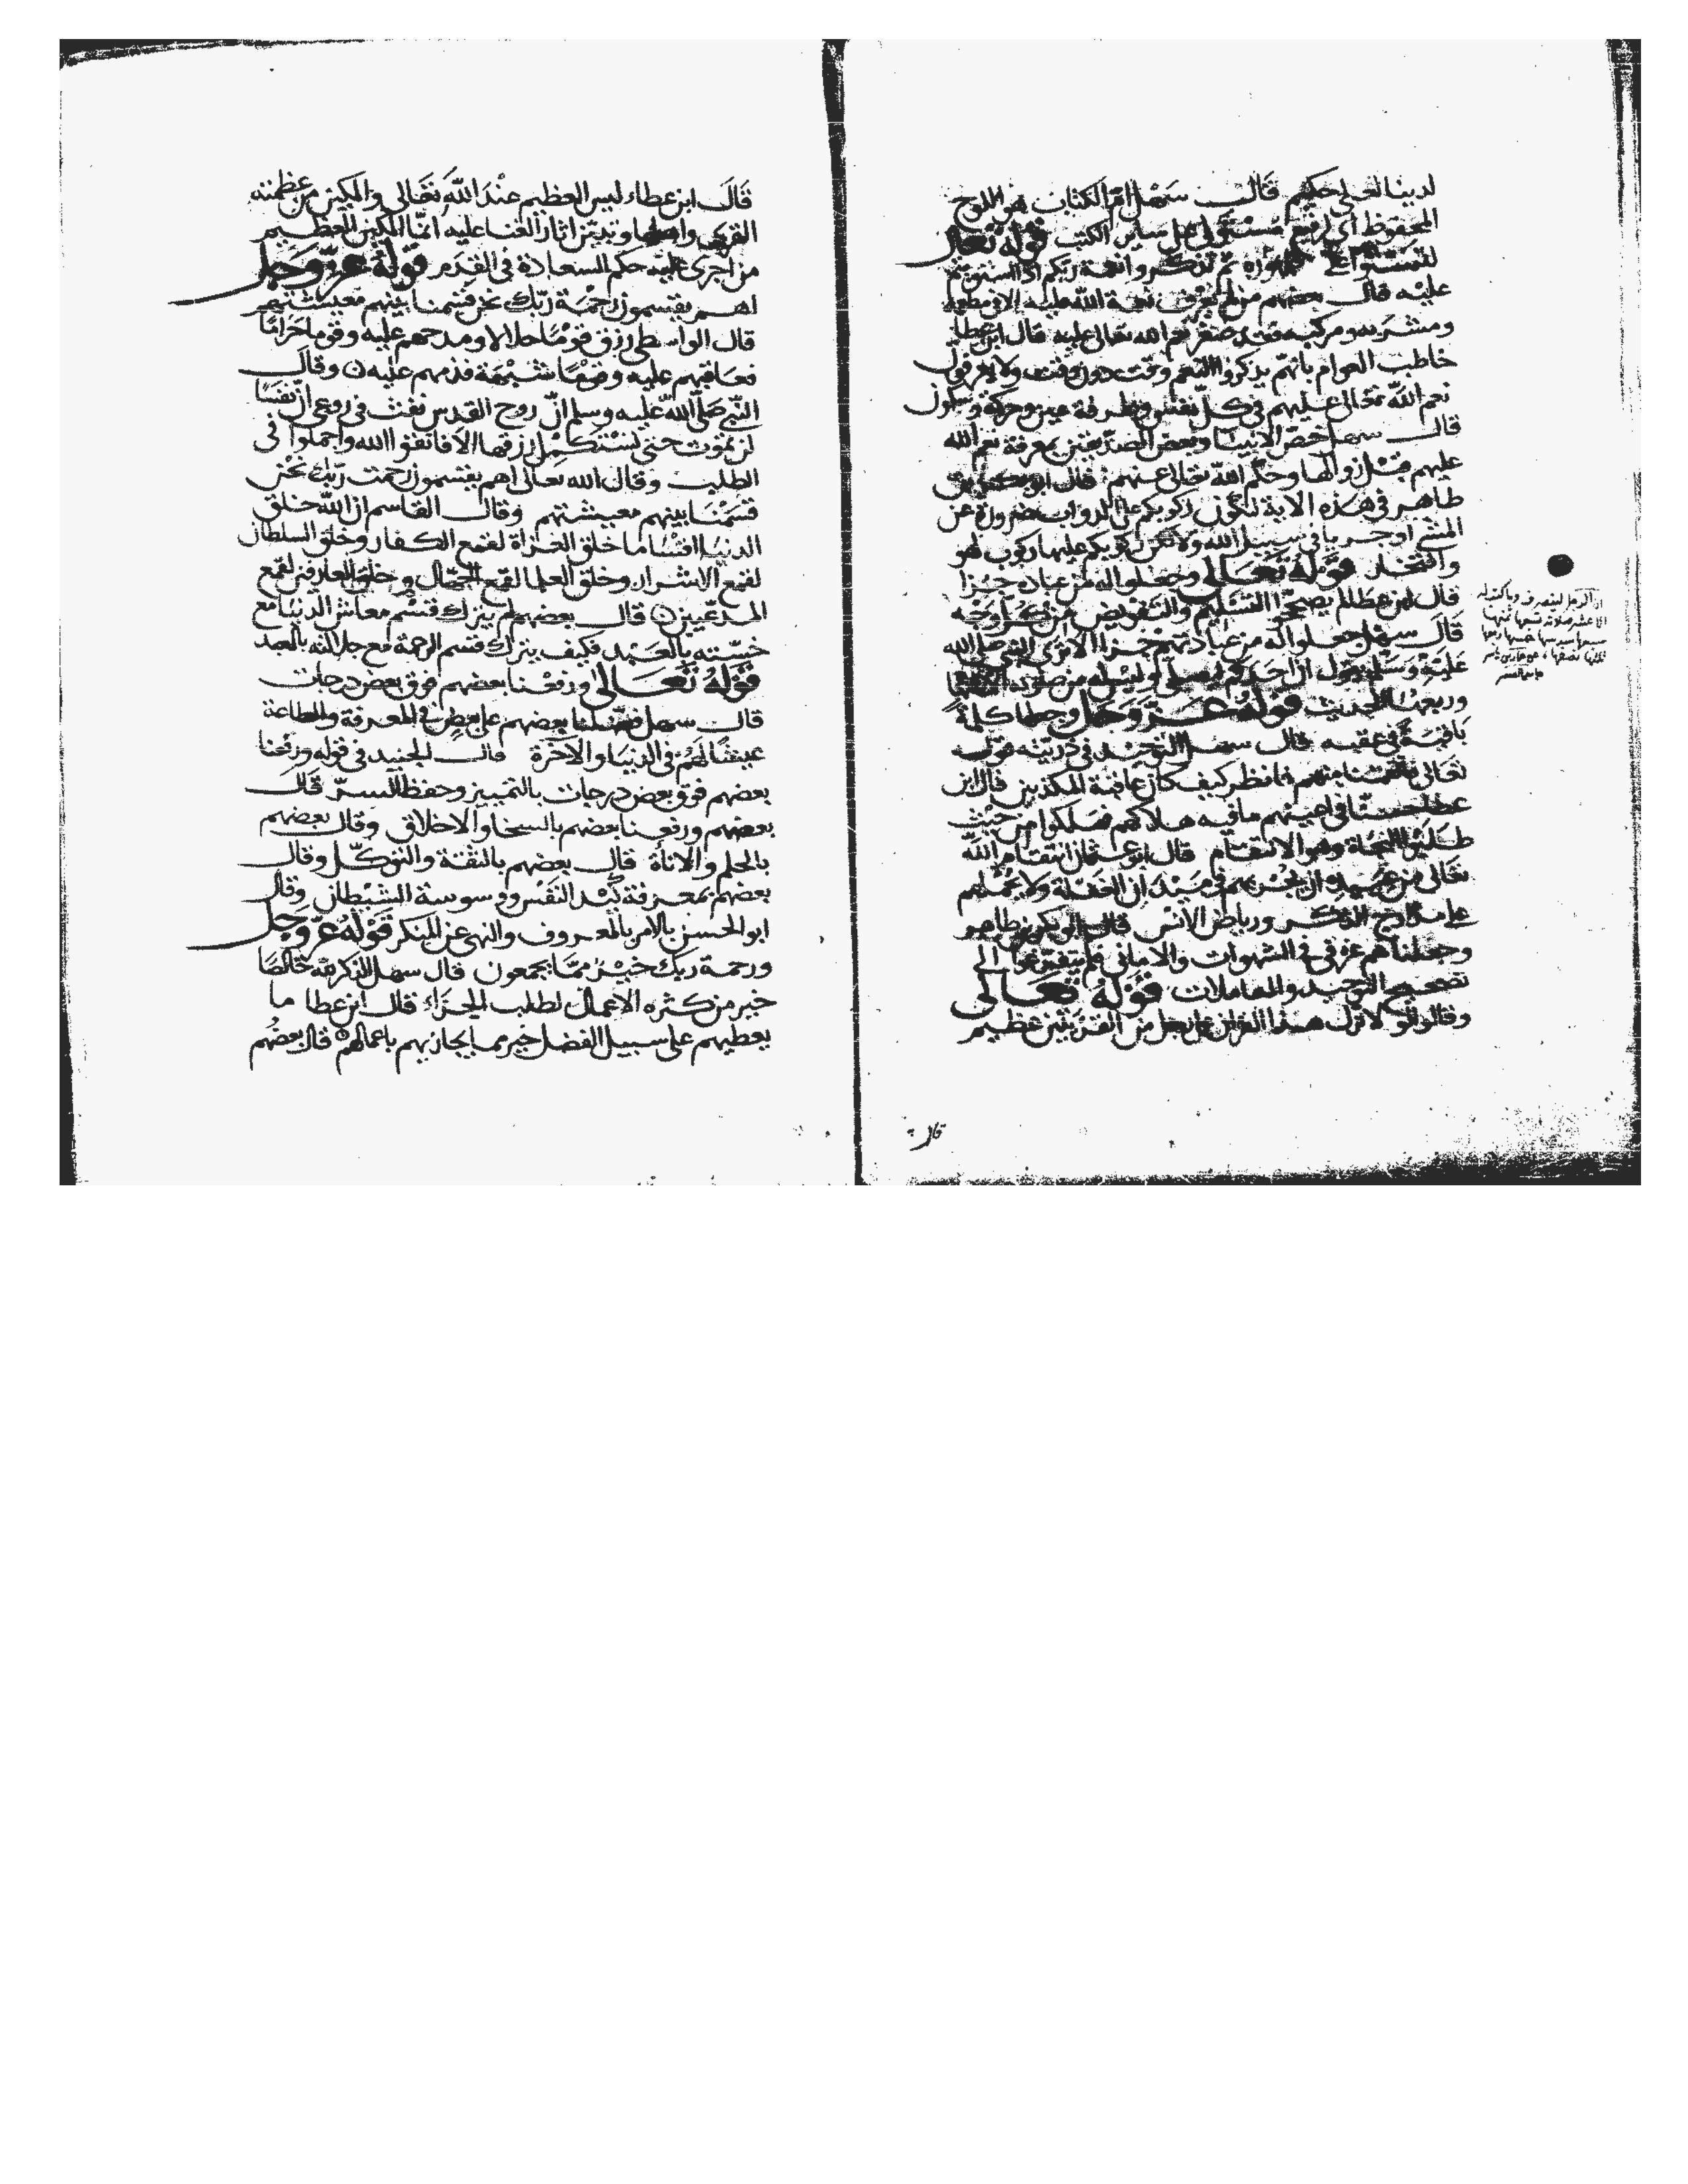 لدينا لعلي حكيم قالت سهل ام الكتاب هو اللوح
المحفوظ اي رفيع مستولي على ساير الكتب قوله تعالى
لتستووا على ظهوره ثم تذكروا نعمة ربكم اذا استويتم
عليه قال بعضهم من لم يعرف نعمة الله عليه الا في مطعمه
ومشربه ومركبه فقد صغر نعم الله تعالى عليه قال ابن عطا
خاطب العوام بانهم يذكروا النعم وقت دون وقت ولا يعرفون
نعم الله تعالى عليهم في كل نفس وطرفة عين وحركة وسكون
قالت سهل خص الانبيا وبعض الصديقين بمعرفة نعم الله
عليهم قبل زوالها وحكم الله تعالى عنهم قال ابو بكر بن
طاهر في هذه الاية لتكون ركوبكم على الدواب ضرورة عن
المشي او جريا في سبيل الله ولا يكن ركوبكم عليها ركوب لهو
وافتخار قوله تعالى وجعلوا له من عباده جزءا
قال ابن عطا لم يصححوا التسليم والتفويض من كل وجه
قالت سهل وجعلوا له من عبادتهم جزءا الا ترى النبي صلى الله
عليه وسلم يقول ان احدكم ليصلي وليس له من صلوته
وربعها الحديث قوله عز وجل وجعلها كلمة
باقية في عقبه قال سهل التوحيد في ذريته قوله
تعالى فانتقمنا منهم فانظر كيف كان عاقبة المكذبين قال ابن
عطا حسنا في اعينهم ما فيه هلاكهم فهلكوا من حيث
طلبوا النجاة وهو الانتقام قال ابو عثمان انتقام الله
تعالى من عبيده ان يجريهم في ميدان الغفلة ولا يحملهم
على مدارج الذكر ورياض الانس قال ابو بكر بن طاهر
وجعلناهم غرقى في الشهوات والاماني فلم يتفرغوا الى
تصحيح التوحيد والمعاملات قوله تعالى
وقالوا لولا نزل هذا القران على رجل من القريتين عظيم
ان الرجل لينصرف وما كتب له
الا عشر صلاته تسعها ثمنها
سبعها سدسها خمسها ربعها
ثلثها نصفها عن عمار بن ياسر
قالت
قالت ابن عطاء ليس العظيم عند الله تعالى والمكين من عظمته
القرى واهلها وتبين اثار الغنا عليه انما المكين العظيم
من اجرى عليه حكم السعادة في القدم قوله عز وجل
اهم يقسمون رحمة ربك نحن قسمنا بينهم معيشتهم
قال الواسطي رزق قوما حلالا ومدحهم عليه وقوما حراما
فعاقبهم عليه وقوما شبهة فذمهم عليه وقالت
النبي صلى الله عليه وسلم ان روح القدس نفث في روعي ان نفسا
لن تموت حتى تستكمل رزقها الا فاتقوا الله واجملوا في
الطلب وقال الله تعالى اهم يقسمون رحمت ربك نحن
قسمنا بينهم معيشتهم وقالت القاسم ان الله خلق
الدنيا اقساما خلق الغزاة لقمع الكفار وخلق السلطان
لقمع الاشرار وخلق العلما لقمع الجهال وخلق العارفين لقمع
المدعيين قالت بعضهم لم يترك قسم معاش الدنيا مع
خسته بالعبد فكيف يترك قسم الرحمة مع جلالته بالعبد
قوله تعالى ورفعنا بعضهم فوق بعض درجات
قالت سهل فضلنا بعضهم على بعض في المعرفة والطاعة
عيشا لهم في الدنيا والاخرة قالت الجنيد في قوله ورفعنا
بعضهم فوق بعض درجات بالتمييز وحفظ السر قالت
بعضهم ورفعنا بعضهم بالسخا والاخلاق وقالت بعضهم
بالحلم والاناة قالت بعضهم بالثقة والتوكل وقالت
بعضهم بمعرفة كيد النفس ووسوسة الشيطان وقال
ابو الحسن بالامر بالمعروف والنهي عن المنكر قوله عز وجل
ورحمة ربك خير مما يجمعون قال سهل الذكر لله خالصا
خير من كثره الاعمال لطلب الجزاء قالت ابن عطا ما
يعطيهم على سبيل الفضل خير مما يجازيهم باعمالهم قال بعضهم